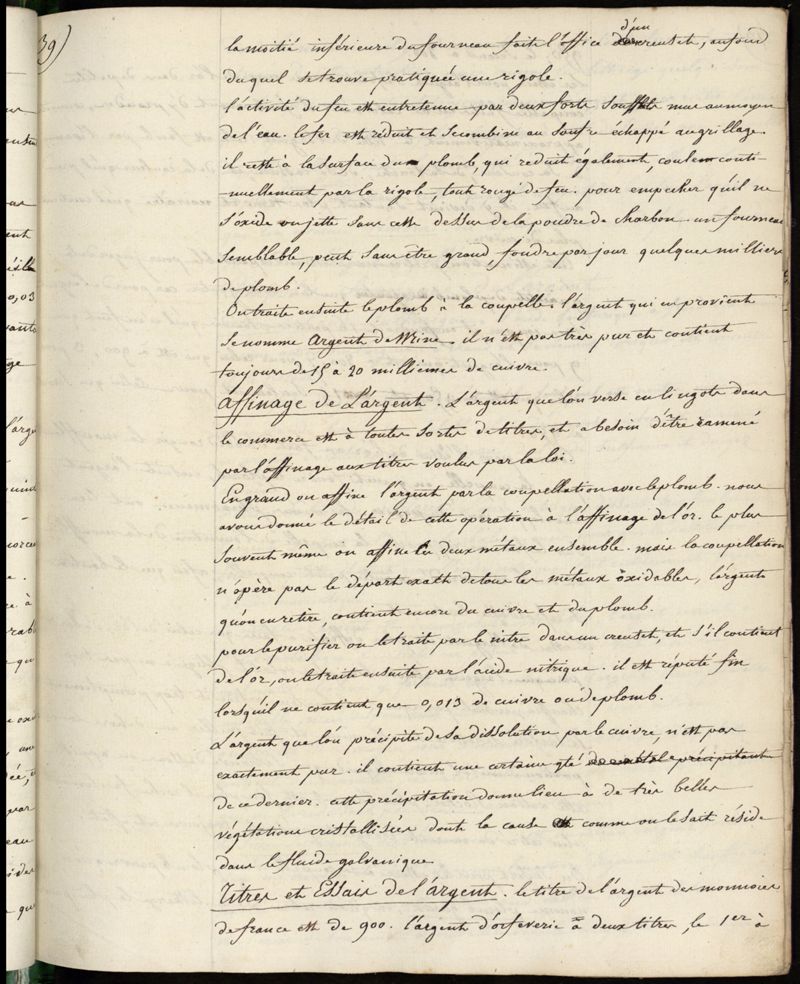 39)
d'un
la moitié inférieure du fourneau fait l'office creuset, au fond
duquel se trouve pratiquée une rigole.
l'activité du feu est entretenue par deux forts soufflets mus au moyen
de l'eau. le fer est réduit et se combine au soufre échappé au grillage.
il reste à la surface du plomb, qui réduit également, coule conti-
-nuellement par la rigole, tout rouge de feu. pour empecher qu'il ne
s'oxide on jette sans cesse dessus de la poudre de charbon. un fourneau
semblable, peut sans être grand, fondre par jour quelques milliers
de plomb.
On traite ensuite le plomb à la coupelle. l'argent qui en provient
se nomme argent de Mine. il n'est pas très pur et contient
toujours de 15 à 20 millièmes de cuivre.
affinage de L'argent. L'argent que l'on verse en lingots dans
le commerce est à toutes sortes de titres, et a besoin d'être ramené
par l'affinage aux titres voulus par la loi.
En grand on affine l'argent par la coupellation avec le plomb. nous
avons donné le détail de cette opération à l'affinage de l'or. le plus
souvent même on affine les deux métaux ensemble. mais la coupellation
n'opère pas le départ exact de tous les métaux oxidables, l'argent
qu'on en retire, contient encore du cuivre et du plomb.
pour le purifier on le traite par le nitre dans un creuset, et s'il contient
de l'or, on le traite ensuite par l'acide nitrique. il est réputé fin
lorsqu'il ne contient que 0,013 de cuivre ou de plomb.
L'argent que l'on précipite de sa dissolution par le cuivre, n'est pas
exactement pur. il contient une certaine qté de métal précipitant
de ce dernier. cette précipitation donne lieu à de très belles
végétations cristallisées dont la cause comme on le sait réside
dans le fluide galvanique
Titres et Essais de l'argent. le titre de l'argent des monnoies
de france est de 900. l'argent d'orfeverie a deux titres, le 1er à